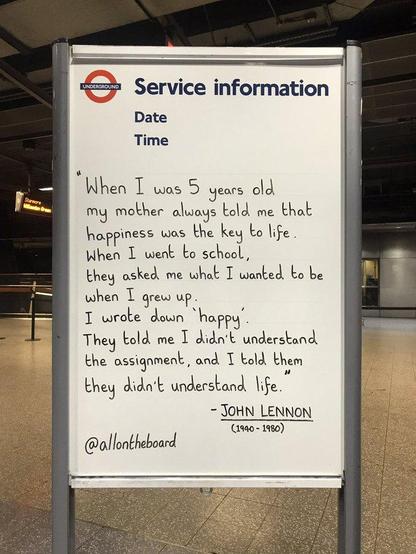 UNDERGROUND
Service information
Date
Time
"When I was 5 years old
my mother always told me that
happiness was the key to life.
When I went to school,
they asked me what I wanted to be
when I grew up.
I wrote down 'happy'.
They told me I didn't understand
the assignment, and I told them
they didn't understand life."
- JOHN LENNON
(1940-1980)
@allontheboard
Stanmore